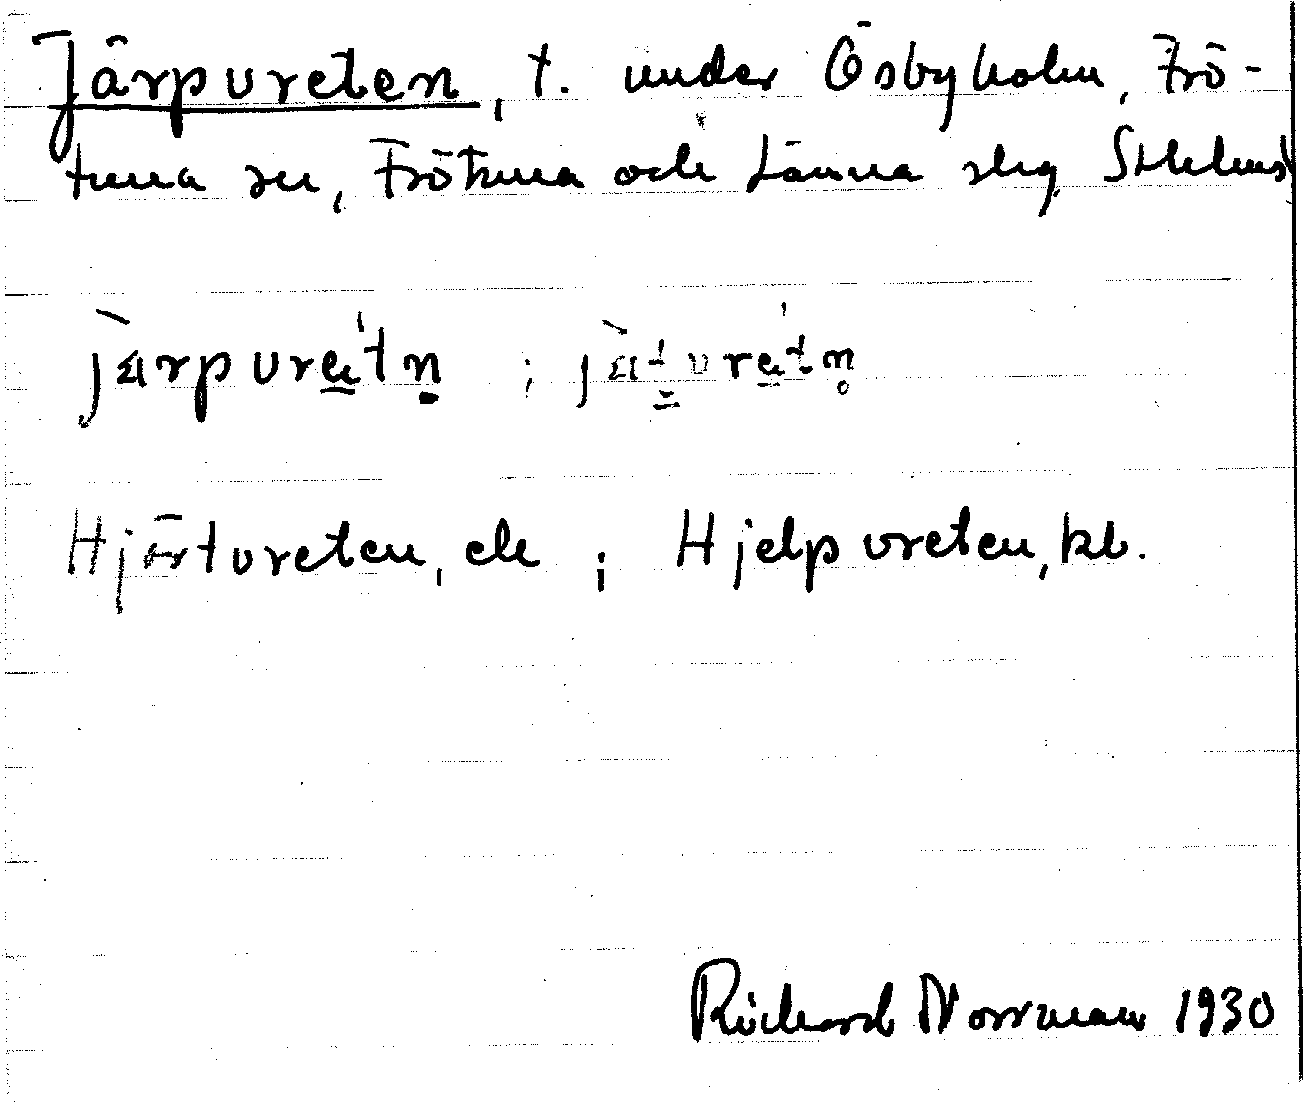 Järpvreten, t. under Ösbyholm, Frö-
tuna sn, Frötuna och Länna slg Sthlms
jä̀rpvre̱ˈtn̥ ; jä̀t̳vre̱ˈtn̥
Hjärtvreten, ek ; Hjelpvreten, kb.
Richard Norrman 1930